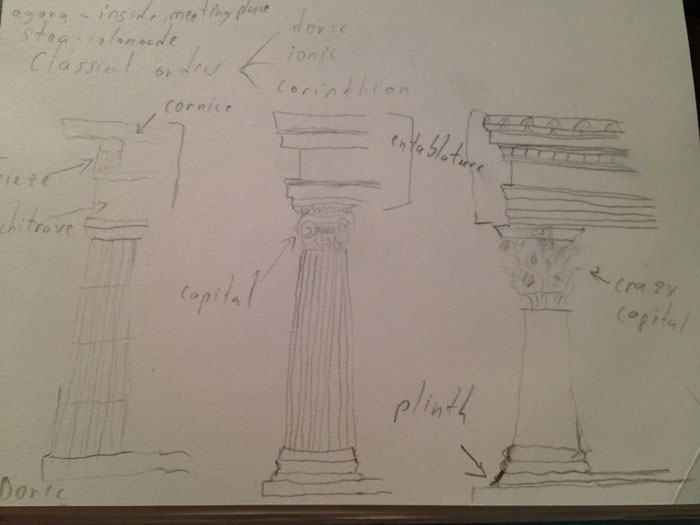 agora - inside, meeting place
stoa - colonnade
Classical orders
doric
ionic
corinthian
cornice
entablature
ieze
chitrave
capital
crazy
capital
plinth
Doric